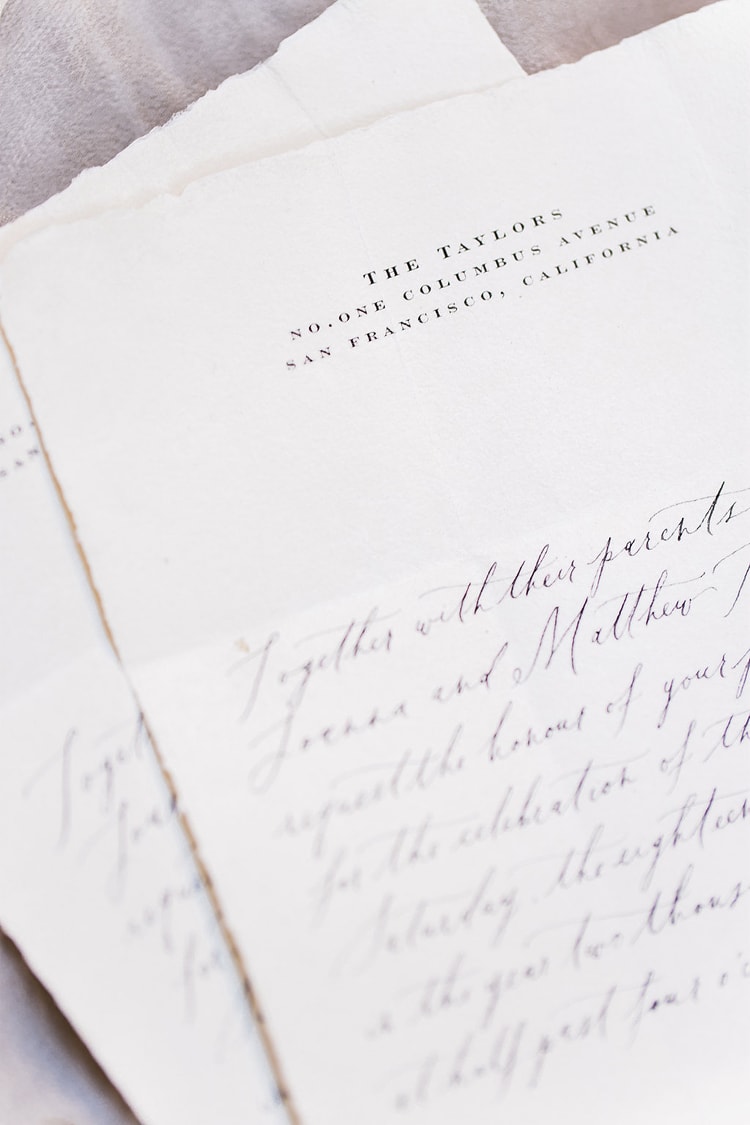 THE TAYLORS
NO.ONE COLUMBUS AVENUE
SAN FRANCISCO, CALIFORNIA
Together with their parents
Joanna and Matthew
request the honour of your
for the celebration of
Saturday, the eighteen
in the year two thous
at half past four o'c
NO.
SAN
Toget